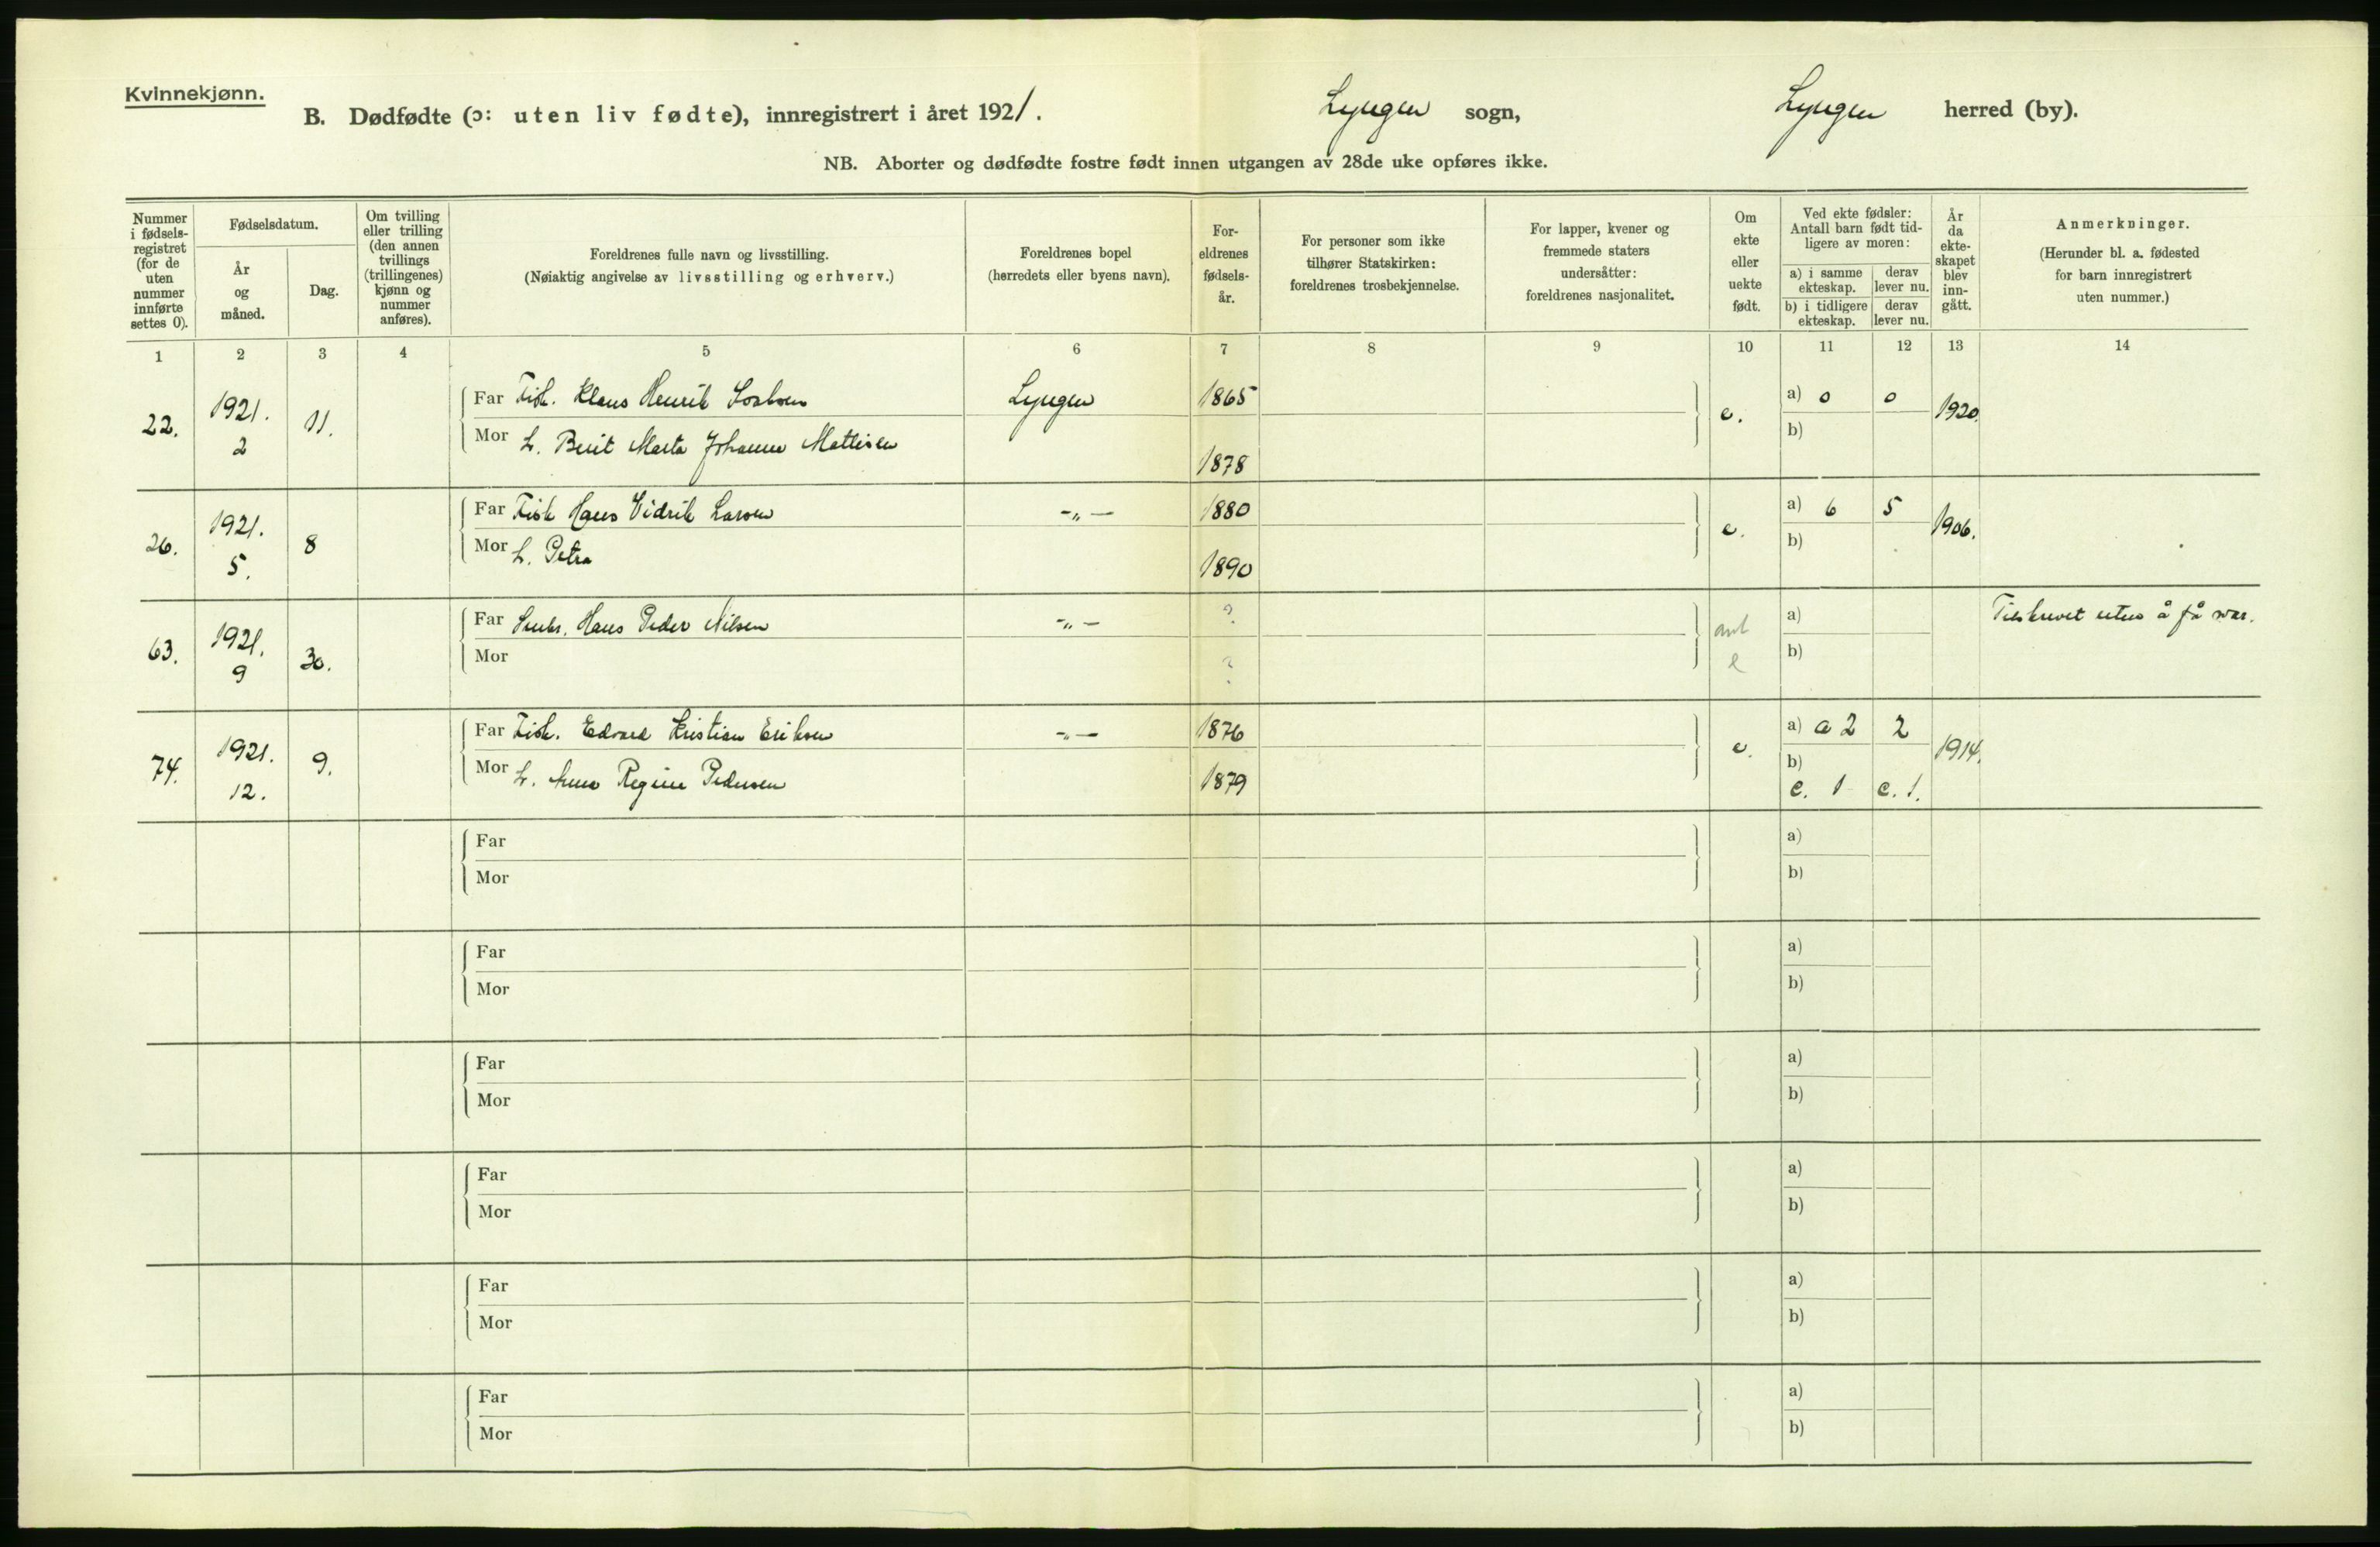 Kvinnekjønn.
B. Dødfødte (ɔ: uten liv fødte), innregistrert i året 1921.
Lyngen sogn,
Lyngen herred (by).
NB. Aborter og dødfødte fostre født innen utgangen av 28de uke opføres ikke.
Nummer i fødselsregistret (for de uten nummer innførte settes 0).
Fødselsdatum.
År og måned.
Dag.
Om tvilling eller trilling (den annen tvillings (trillingenes) kjønn og nummer anføres).
Foreldrenes fulle navn og livsstilling.
(Nøiaktig angivelse av livsstilling og erhverv.)
Foreldrenes bopel
(herredets eller byens navn).
Foreldrenes fødselsår.
For personer som ikke tilhører Statskirken: foreldrenes trosbekjennelse.
For lapper, kvener og fremmede staters undersåtter: foreldrenes nasjonalitet.
Om ekte eller uekte født.
Ved ekte fødsler: Antall barn født tidligere av moren:
a) i samme ekteskap.
derav lever nu.
b) i tidligere ekteskap.
derav lever nu.
År da ekteskapet blev inngått.
Anmerkninger.
(Herunder bl. a. fødested for barn innregistrert uten nummer.)
1 2 3 4 5 6 7 8 9 10 11 12 13 14
22. 1921. 2 11. Far Fisk. Klaus Henrik Lyngen 1865 e. a) 0 0 1920.
Mor h. Berit Marta Johanne Mathisen 1878 b)
26. 1921. 5. 8 Far Fisk Hans Vidrik Larsen -„- 1880 e. a) 6 5 1906.
Mor h. Petra 1890 b)
63. 1921. 9 30. Far Hans Peder Nilsen -„- ? ant e a) Tilskrevet uten å få svar.
Mor ? b)
74. 1921. 12. 9. Far Fisk. Edvard Kristian Eriksen -„- 1876 e. a) a 2 2 1914.
Mor h. Anna Regine Pedersen 1879 b)
c. 1 c. 1.
Far a)
Mor b)
Far a)
Mor b)
Far a)
Mor b)
Far a)
Mor b)
Far a)
Mor b)
Far a)
Mor b)